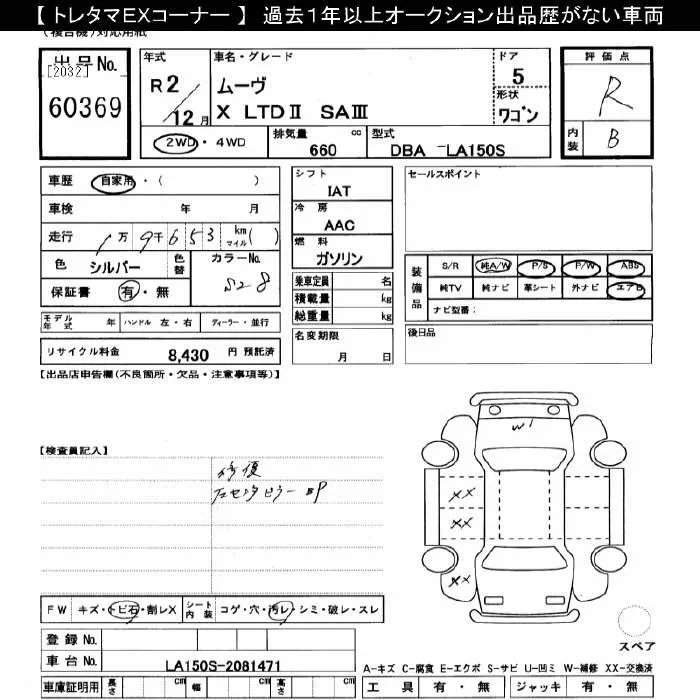 【 トレタマEXコーナー 】 過去1年以上オークション出品歴がない車両
(複合機)対応用紙
出品No.
[2032]
60369
年式
R 2 / 12 月
車名・グレード
ムーヴ
X LTDⅡ SAⅢ
ドア
5
形状
ワゴン
2WD・4WD
排気量 cc
660
型式
DBA -LA150S
評価点
R
内装
B
車歴 自家用・( )
車検 年 月
走行 1万9千653 km マイル ( )
色 シルバー 色替 カラーNo. S28
保証書 有・無
シフト
IAT
冷房
AAC
燃料
ガソリン
乗車定員 名
積載量 kg
総重量 kg
セールスポイント
装備品
S/R 純A/W P/S P/W ABS
純TV 純ナビ 革シート 外ナビ エアB
ナビ型番:
モデル年式 年 ハンドル 左・右 ディーラー・並行
リサイクル料金 8,430 円 預託済
名変期限
月 日
後日品
【出品店申告欄(不良箇所・欠品・注意事項等)】
【検査員記入】
修復
W1
XX
XX
XX
FW キズ・トビ石・割レX シート内装 コゲ・穴・汚レ・シミ・破レ・スレ
スペア
登録 No.
車台 No. LA150S-2081471
A-キズ C-腐食 E-エクボ S-サビ U-凹ミ W-補修 XX-交換済
車庫証明用 長さ cm 幅 cm 高さ cm
工具 有・無 ジャッキ 有・無